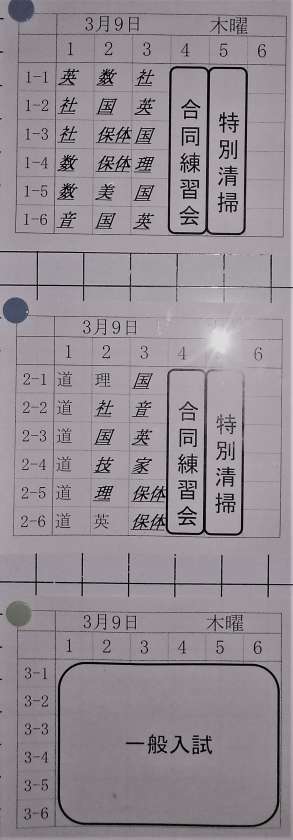 3月9日 木曜
1 2 3 4 5 6
1-1 英 数 社
1-2 社 国 英
1-3 社 保体 国
1-4 数 保体 理
1-5 数 美 国
1-6 音 国 英
合同練習会
特別清掃
3月9日
1 2 3 4 6
2-1 道 理 国
2-2 道 社 音
2-3 道 国 英
2-4 道 技 家
2-5 道 理 保体
2-6 道 英 保体
合同練習会
特別清掃
3月9日 木曜
1 2 3 4 5 6
3-1
3-2
3-3
3-4
3-5
3-6
一般入試